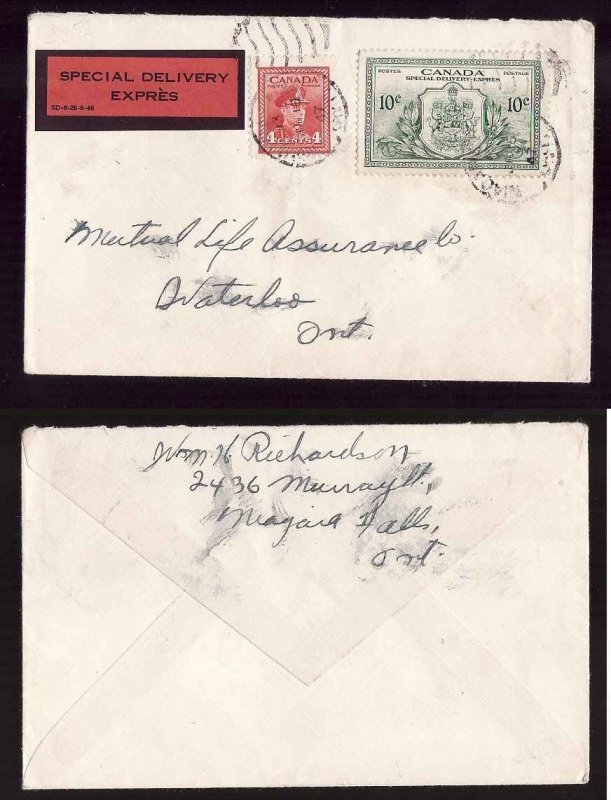 SPECIAL DELIVERY
EXPRÈS
SD-6-28-6-46
CANADA
POSTES POSTAGE
4 CENTS 4
POSTES CANADA POSTAGE
SPECIAL DELIVERY-EXPRÈS
10c 10c
Mutual Life Assurance Co
Waterloo
Ont.
Wm H Richardson
2436 Murray St.,
Niagara Falls,
Ont.